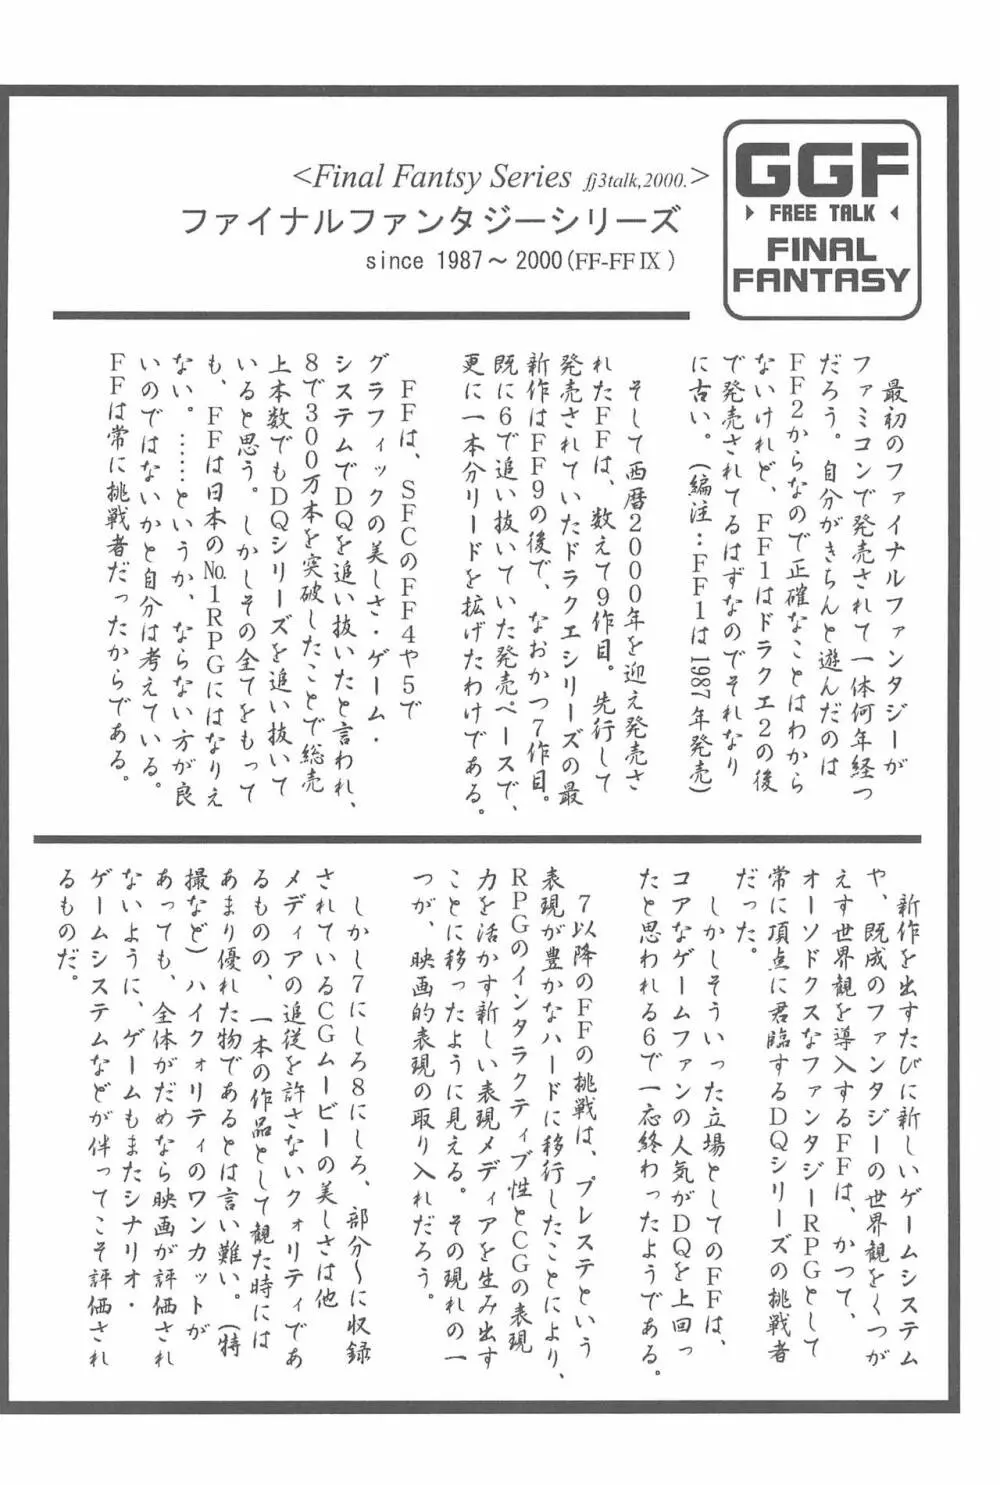 <Final Fantsy Series fj3talk,2000.>
ファイナルファンタジーシリーズ
since 1987～2000(FF-FFⅨ)
GGF
FREE TALK
FINAL
FANTASY
最初のファイナルファンタジーが
ファミコンで発売されて一体何年経つ
だろう。自分がきちんと遊んだのは
FF2からなので正確なことはわから
ないけれど、FF1はドラクエ2の後
で発売されてるはずなのでそれなり
に古い。(編注:FF1は1987年発売)
そして西暦2000年を迎え発売さ
れたFFは、数えて9作目。先行して
発売されていたドラクエシリーズの最
新作はFF9の後で、なおかつ7作目。
既に6で追い抜いていた発売ペースで、
更に一本分リードを拡げたわけである。
FFは、SFCのFF4や5で
グラフィックの美しさ・ゲーム・
システムでDQを追い抜いたと言われ、
8で300万本を突破したことで総売
上本数でもDQシリーズを追い抜いて
いると思う。しかしその全てをもって
も、FFは日本の№1RPGにはなりえ
ない。……というか、ならない方が良
いのではないかと自分は考えている。
FFは常に挑戦者だったからである。
新作を出すたびに新しいゲームシステム
や、既成のファンタジーの世界観をくつが
えす世界観を導入するFFは、かつて、
オーソドクスなファンタジーRPGとして
常に頂点に君臨するDQシリーズの挑戦者
だった。
しかしそういった立場としてのFFは、
コアなゲームファンの人気がDQを上回っ
たと思われる6で一応終わったようである。
7以降のFFの挑戦は、プレステという
表現が豊かなハードに移行したことにより、
RPGのインタラクティブ性とCGの表現
力を活かす新しい表現メディアを生み出す
ことに移ったように見える。その現れの一
つが、映画的表現の取り入れだろう。
しかし7にしろ8にしろ、部分〜に収録
されているCGムービーの美しさは他
メディアの追従を許さないクォリティであ
るものの、一本の作品として観た時には
あまり優れた物であるとは言い難い。(特
撮など)ハイクォリティのワンカットが
あっても、全体がだめなら映画が評価され
ないように、ゲームもまたシナリオ・
ゲームシステムなどが伴ってこそ評価され
るものだ。